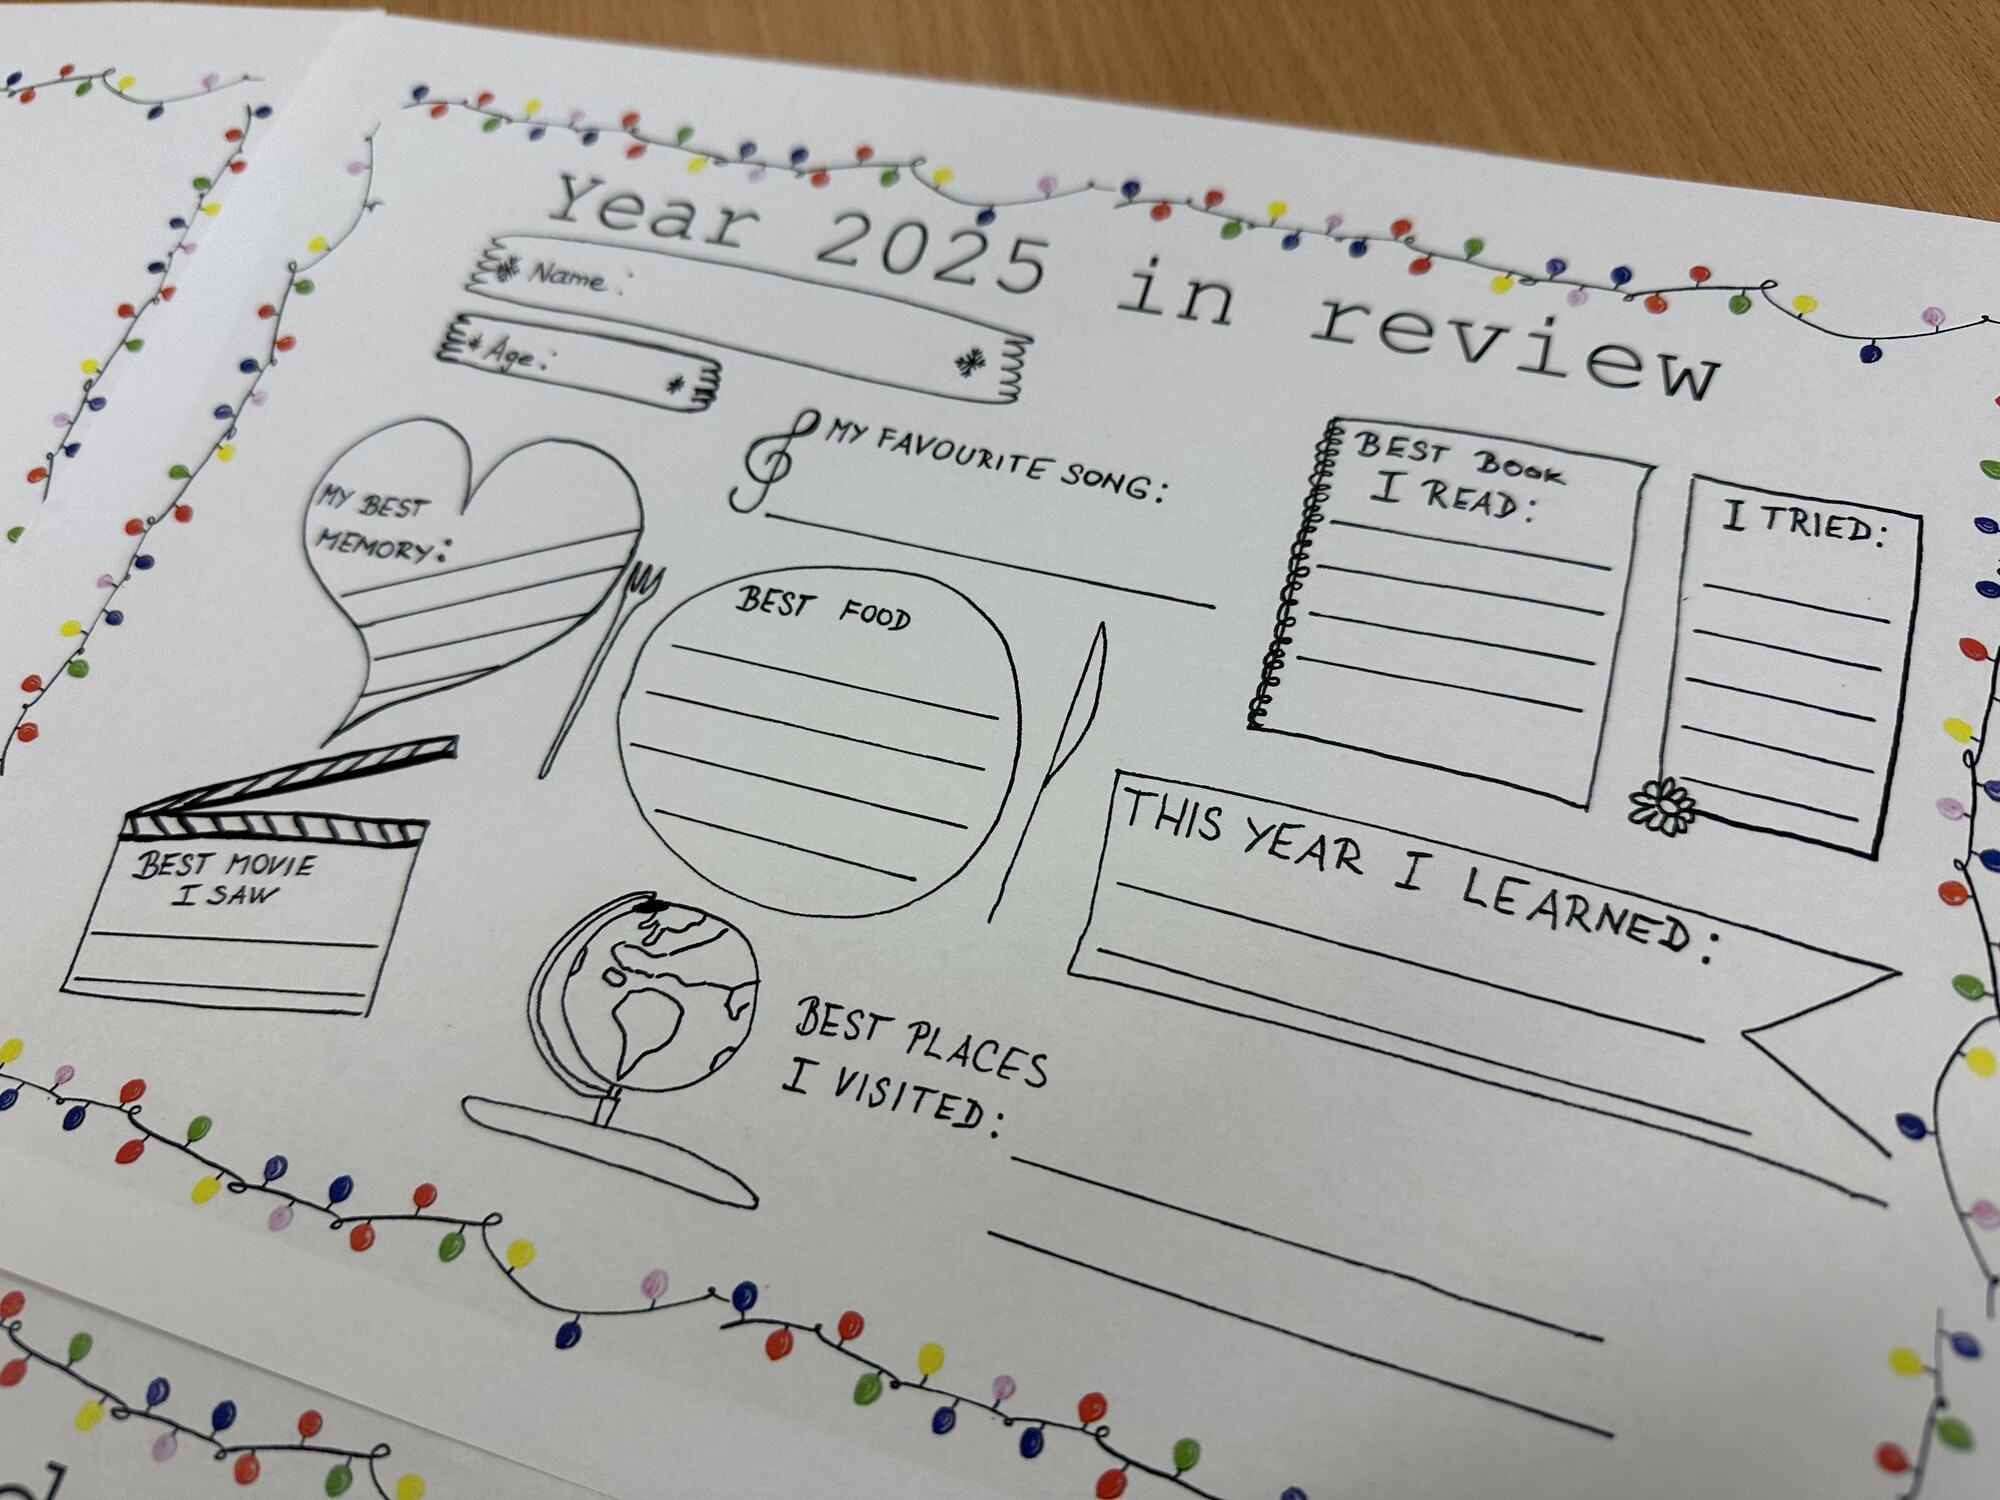 Year 2025 in review
Name:
Age:
MY FAVOURITE SONG:
MY BEST
MEMORY:
BEST BOOK
I READ:
I TRIED:
BEST FOOD
THIS YEAR I LEARNED:
BEST MOVIE
I SAW
BEST PLACES
I VISITED: